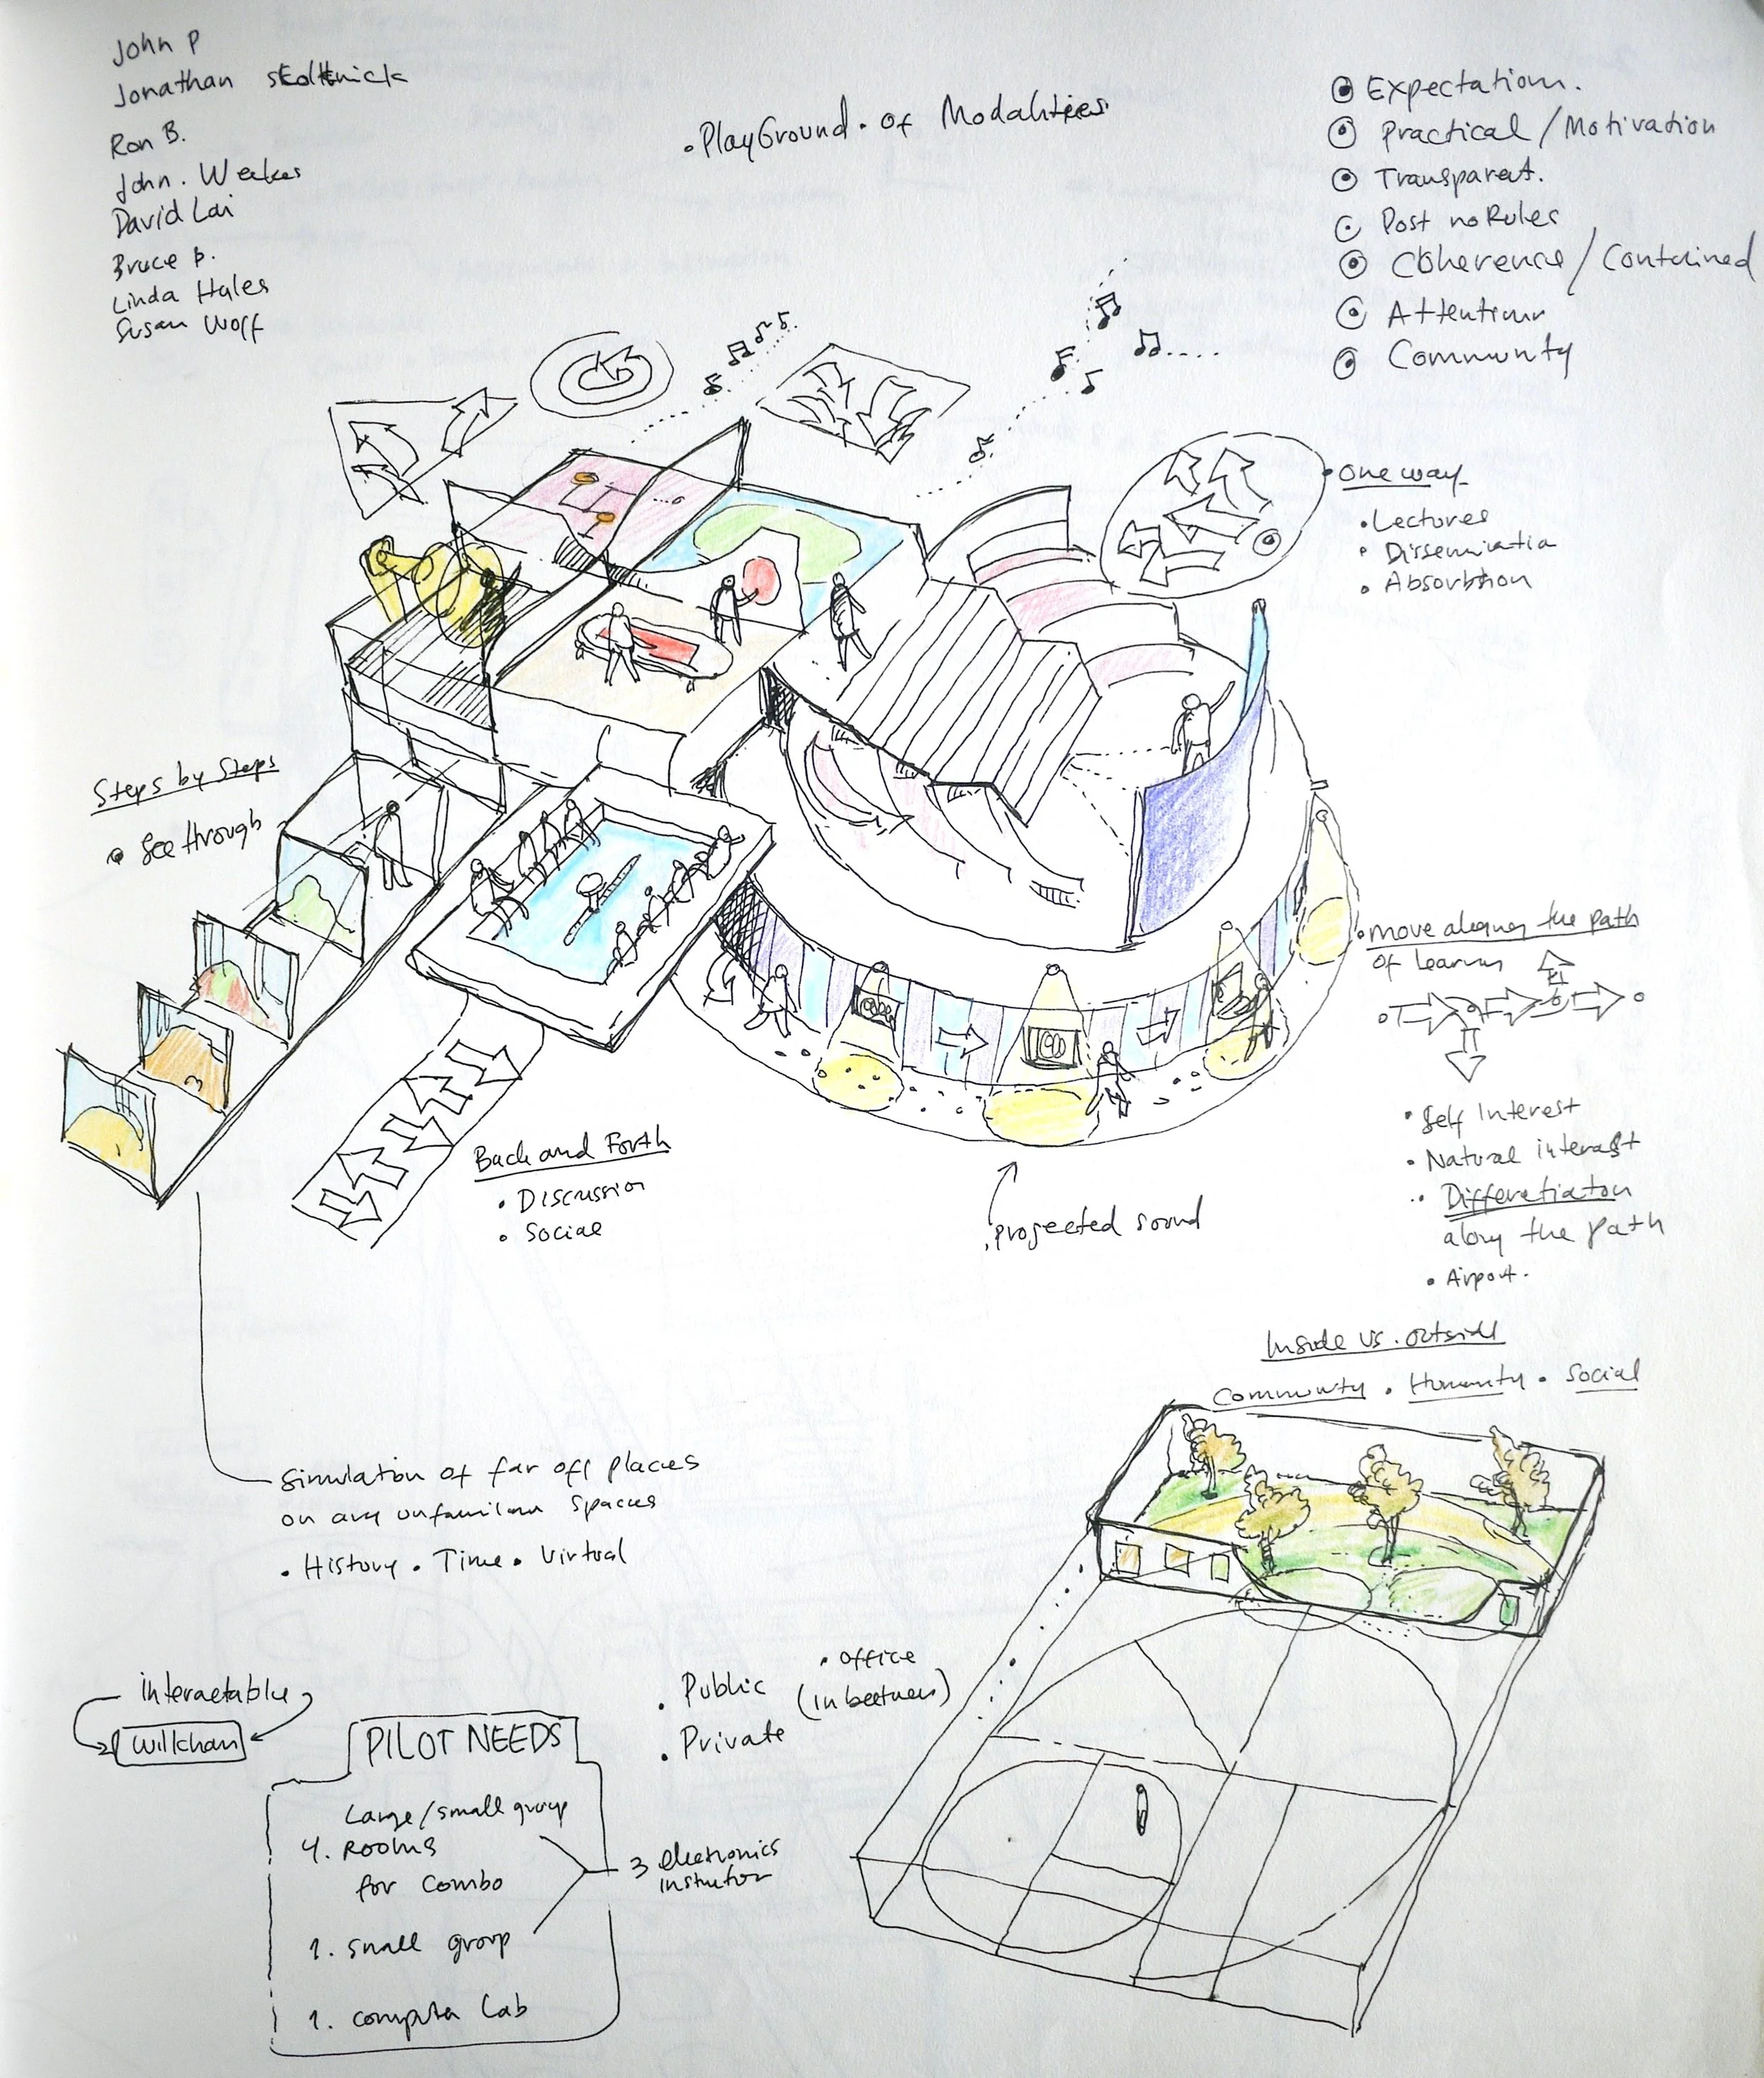 John P
Jonathan
Ron B.
John. Weekes
David Lai
Bruce B.
Linda Hales
Susan Wolf
• PlayGround • of Modalities
Expectation.
Practical / Motivation
Transparent.
Post no Rules
Coherence / Contained
Attention
Community
• One way
• Lectures
• Dissemination
• Absorbtion
Steps by Steps
See through
• move along the path
of learning
• Self Interest
• Natural interest
• Differetiaton
along the path
• Airport.
Back and Forth
• Discussion
• Social
• projected sound
Simulation of far off places
on any unfamiliar spaces
• History • Time • Virtual
Inside vs. outside
Community • Humanity • Social
interactable
PILOT NEEDS
Large/small group
4. Rooms
for Combo
1. small group
1. computer Lab
3 electronics
• Public
• Private
• office
(in between)
3
1